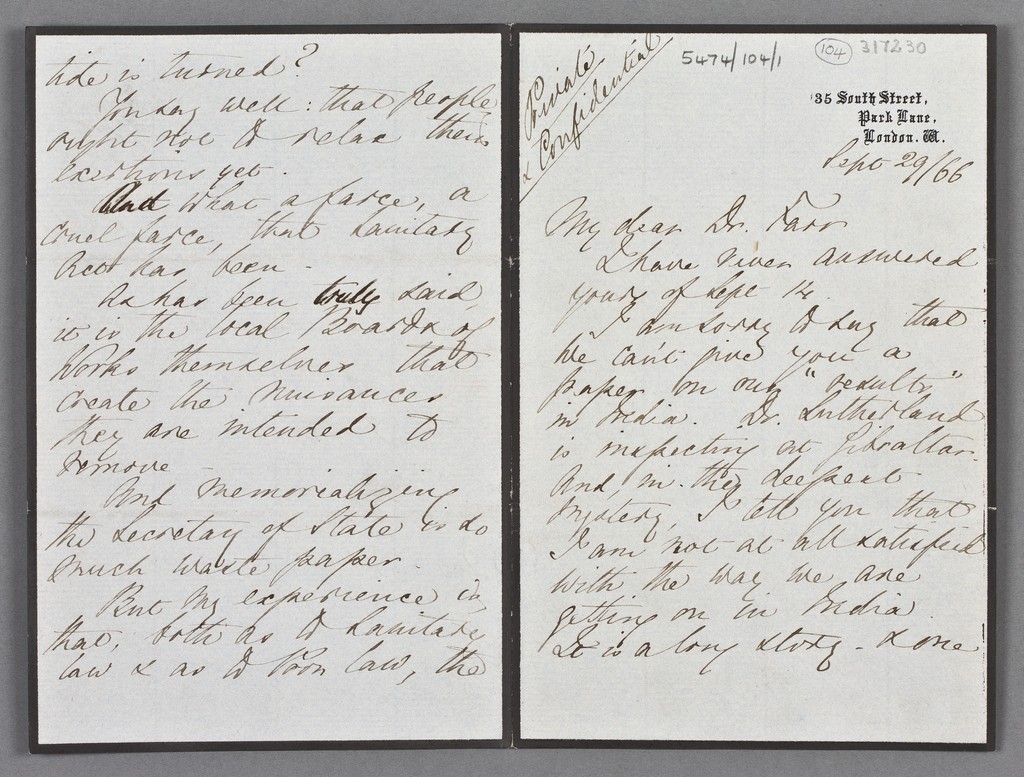 tide is turned?
You say well: that people
ought not to relax their
exertions yet.
And what a farce, a
cruel farce, that Sanitary
Act has been -
As has been truly said,
it is the local Boards of
Works themselves that
create the nuisances
they are intended to
remove -
And memorializing
the Secretary of State is so
much waste paper.
But my experience is,
that, both as to Sanitary
law & as to Poor law, the
Private
& Confidential
5474/104/1
104
317230
35 South Street,
Park Lane,
London. W.
Sept 29/66
My dear Dr. Farr
I have never answered
yours of Sept 14.
I am sorry to say that
we can't give you a
paper on our "results"
in India. Dr. Sutherland
is inspecting at Gibraltar.
And, in the deepest
mystery, I tell you that
I am not at all satisfied
with the way we are
getting on in India.
It is a long story - & one